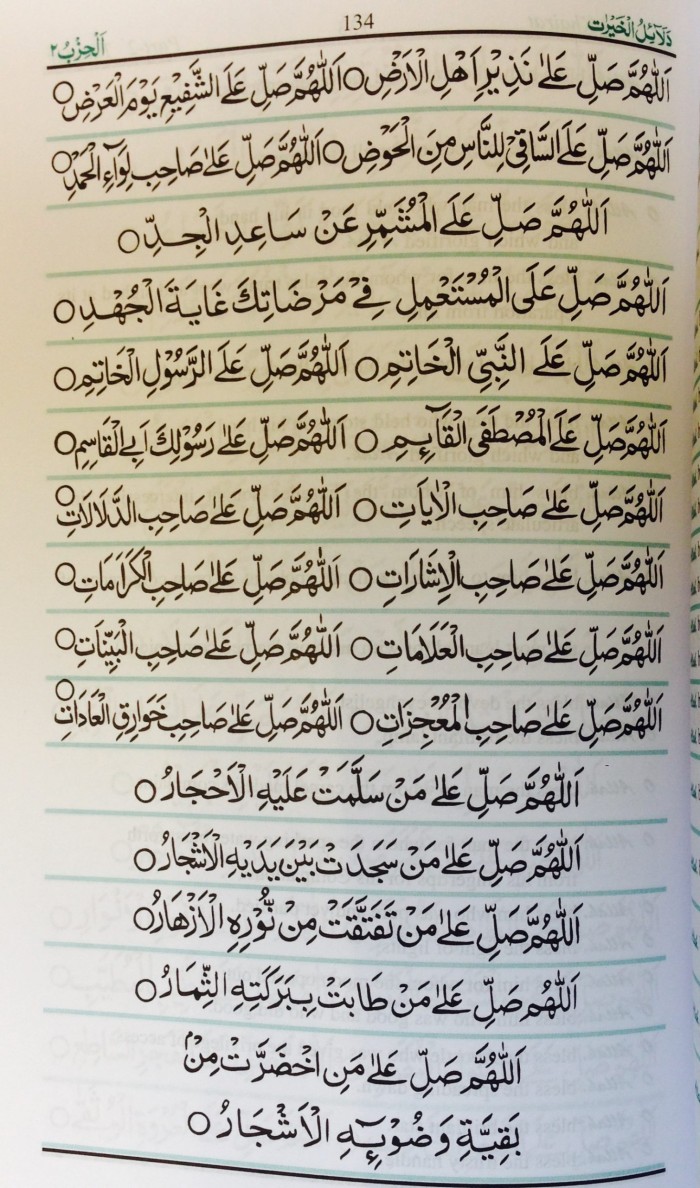 دَلَآئِلُ الْخَيْرَات 134 اَلْحِزْبُ ٢
اَللّٰهُمَّ صَلِّ عَلٰى نَذِيْرِ اَهْلِ الْاَرْضِ ○ اَللّٰهُمَّ صَلِّ عَلَى الشَّفِيْعِ يَوْمَ الْعَرْضِ ○
اَللّٰهُمَّ صَلِّ عَلَى السَّاقِيْ لِلنَّاسِ مِنَ الْحَوْضِ ○ اَللّٰهُمَّ صَلِّ عَلٰى صَاحِبِ لِوَآءِ الْحَمْدِ ○
اَللّٰهُمَّ صَلِّ عَلَى الْمُشَمِّرِ عَنْ سَاعِدِ الْجِدِّ ○
اَللّٰهُمَّ صَلِّ عَلَى الْمُسْتَعْمِلِ فِيْ مَرْضَاتِكَ غَايَةَ الْجُهْدِ ○
اَللّٰهُمَّ صَلِّ عَلَى النَّبِيِّ الْخَاتِمِ ○ اَللّٰهُمَّ صَلِّ عَلَى الرَّسُوْلِ الْخَاتِمِ ○
اَللّٰهُمَّ صَلِّ عَلَى الْمُصْطَفَى الْقَآئِمِ ○ اَللّٰهُمَّ صَلِّ عَلٰى رَسُوْلِكَ اَبِي الْقَاسِمِ ○
اَللّٰهُمَّ صَلِّ عَلٰى صَاحِبِ الْاٰيَاتِ ○ اَللّٰهُمَّ صَلِّ عَلٰى صَاحِبِ الدَّلَالَاتِ ○
اَللّٰهُمَّ صَلِّ عَلٰى صَاحِبِ الْاِشَارَاتِ ○ اَللّٰهُمَّ صَلِّ عَلٰى صَاحِبِ الْكَرَامَاتِ ○
اَللّٰهُمَّ صَلِّ عَلٰى صَاحِبِ الْعَلَامَاتِ ○ اَللّٰهُمَّ صَلِّ عَلٰى صَاحِبِ الْبَيِّنَاتِ ○
اَللّٰهُمَّ صَلِّ عَلٰى صَاحِبِ الْمُعْجِزَاتِ ○ اَللّٰهُمَّ صَلِّ عَلٰى صَاحِبِ خَوَارِقِ الْعَادَاتِ ○
اَللّٰهُمَّ صَلِّ عَلٰى مَنْ سَلَّمَتْ عَلَيْهِ الْاَحْجَارُ ○
اَللّٰهُمَّ صَلِّ عَلٰى مَنْ سَجَدَتْ بَيْنَ يَدَيْهِ الْاَشْجَارُ ○
اَللّٰهُمَّ صَلِّ عَلٰى مَنْ تَفَتَّقَتْ مِنْ نُّوْرِهِ الْاَزْهَارُ ○
اَللّٰهُمَّ صَلِّ عَلٰى مَنْ طَابَتْ بِبَرَكَتِهِ الثِّمَارُ ○
اَللّٰهُمَّ صَلِّ عَلٰى مَنِ اخْضَرَّتْ مِنْۢ
بَقِيَّةِ وَضُوْئِهِ الْاَشْجَارُ ○